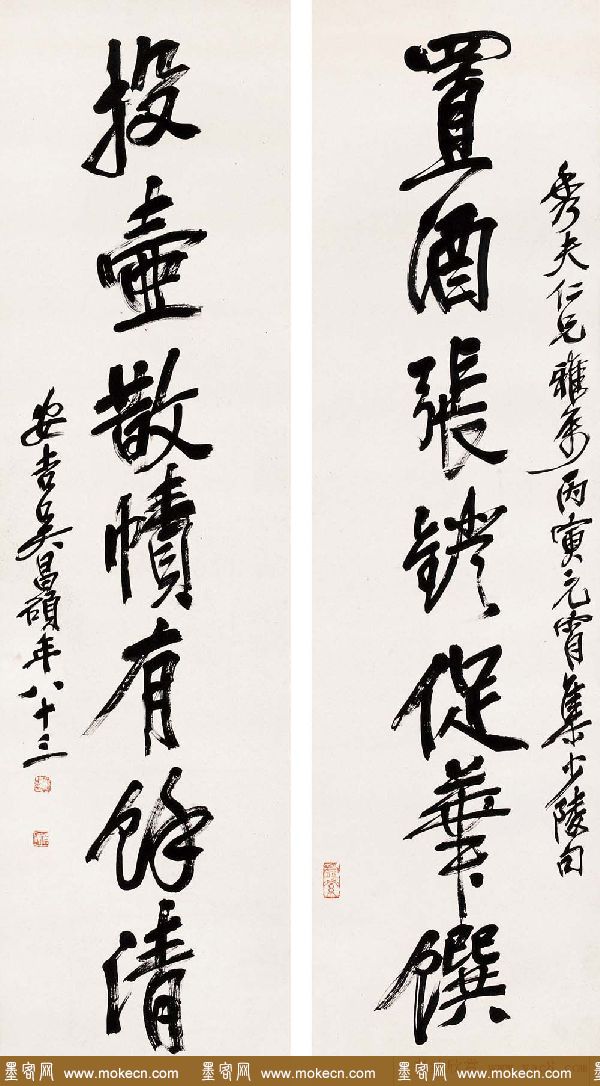 置酒張鐙促華饌
秀夫仁兄雅屬丙寅元宵集少陵句
投壺散幘有餘清
安吉吳昌碩年八十三
墨客网 www.mokecn.com 墨客网 www.mokecn.com 墨客网 www.mokecn.com